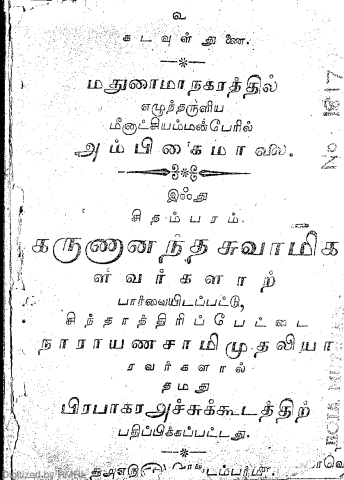 உ
கடவுள் துணை.
மதுரைமாநகரத்தில்
எழுந்தருளிய
மீனாட்சியம்மன்பேரில்
அம்பிகைமாலை.
இஃது
சிதம்பரம்.
கருணானந்தசுவாமிக
ளவர்களாற்
பார்வையிடப்பட்டு,
சிந்தாத்திரிப்பேட்டை
நாராயணசாமிமுதலியா
ரவர்களால்
தமது
பிரபாகரஅச்சுக்கூடத்திற்
பதிப்பிக்கப்பட்டது.
No. 1817
Digitized by